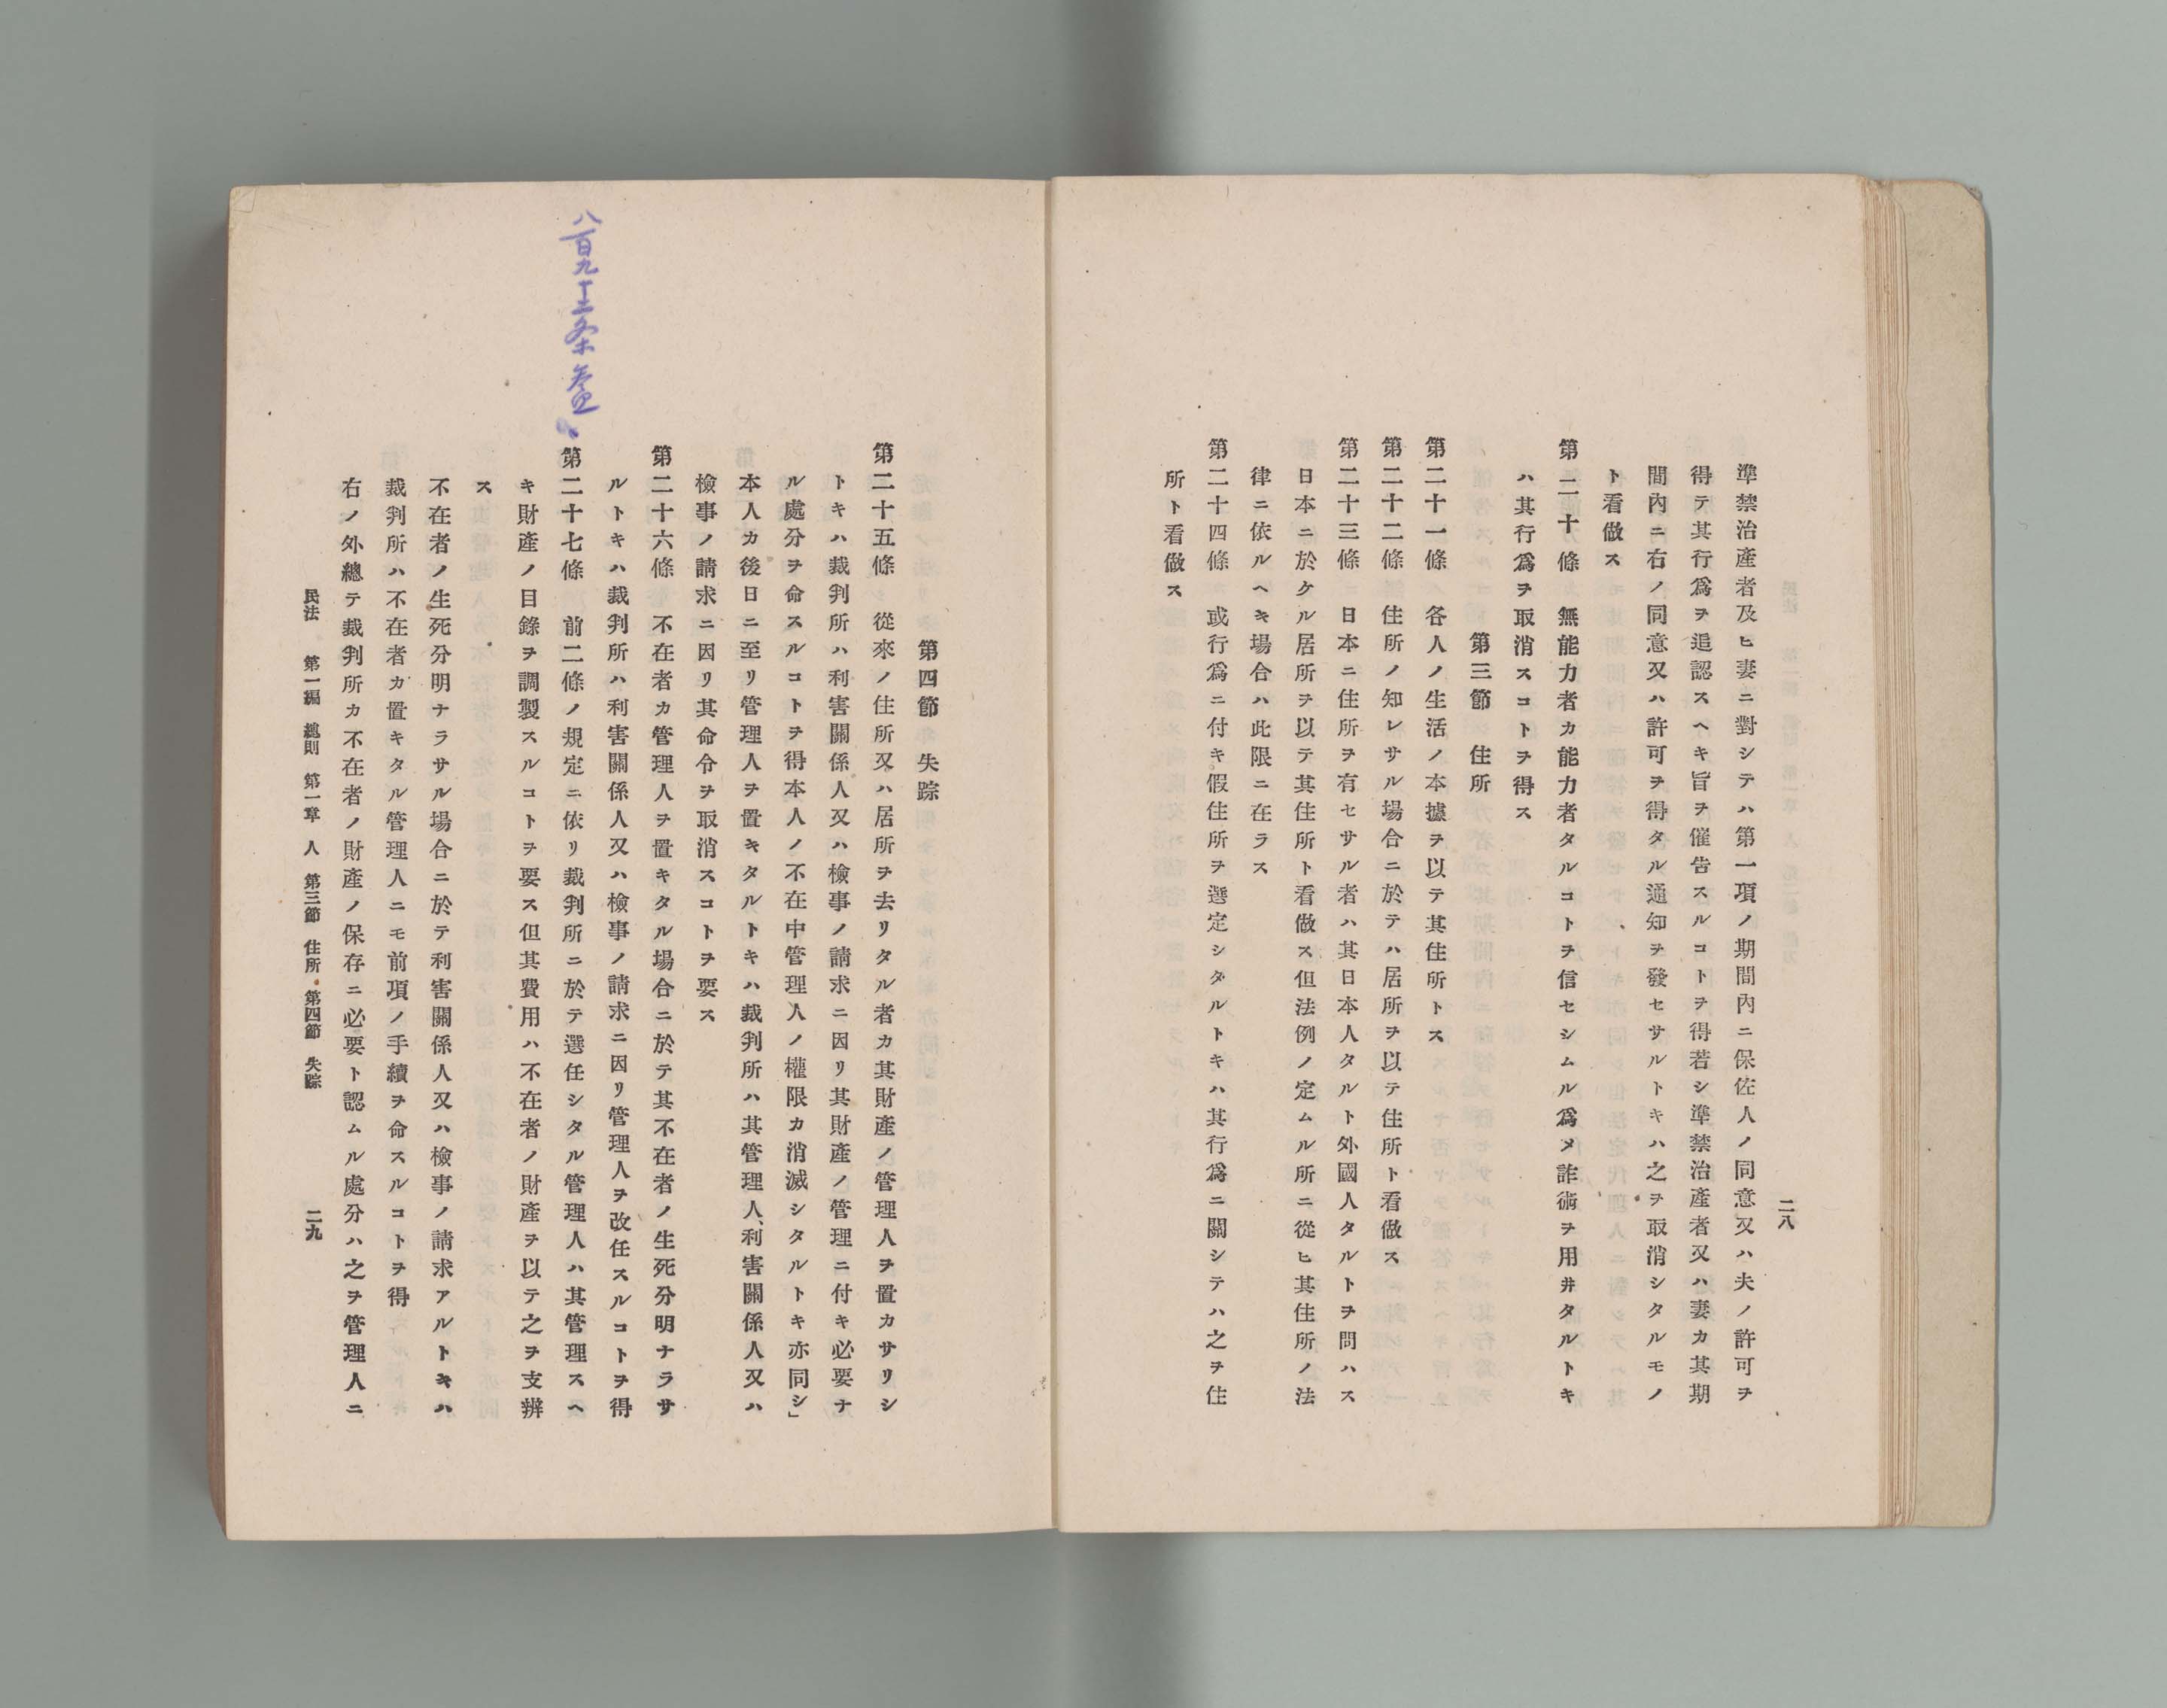 二八
準禁治產者及ヒ妻ニ對シテハ第一項ノ期間內ニ保佐人ノ同意又ハ夫ノ許可ヲ
得テ其行爲ヲ追認スヘキ旨ヲ催告スルコトヲ得若シ準禁治產者又ハ妻カ其期
間內ニ右ノ同意又ハ許可ヲ得タル通知ヲ發セサルトキハ之ヲ取消シタルモノ
ト看做ス
第二十條 無能力者カ能力者タルコトヲ信セシムル爲メ詐術ヲ用井タルトキ
ハ其行爲ヲ取消スコトヲ得ス
第三節 住所
第二十一條 各人ノ生活ノ本據ヲ以テ其住所トス
第二十二條 住所ノ知レサル場合ニ於テハ居所ヲ以テ住所ト看做ス
第二十三條 日本ニ住所ヲ有セサル者ハ其日本人タルト外國人タルトヲ問ハス
日本ニ於ケル居所ヲ以テ其住所ト看做ス但法例ノ定ムル所ニ從ヒ其住所ノ法
律ニ依ルヘキ場合ハ此限ニ在ラス
第二十四條 或行爲ニ付キ假住所ヲ選定シタルトキハ其行爲ニ關シテハ之ヲ住
所ト看做ス
第四節 失踪
第二十五條 從來ノ住所又ハ居所ヲ去リタル者カ其財產ノ管理人ヲ置カサリシ
トキハ裁判所ハ利害關係人又ハ檢事ノ請求ニ因リ其財產ノ管理ニ付キ必要ナ
ル處分ヲ命スルコトヲ得本人ノ不在中管理人ノ權限カ消滅シタルトキ亦同シ」
本人カ後日ニ至リ管理人ヲ置キタルトキハ裁判所ハ其管理人、利害關係人又ハ
檢事ノ請求ニ因リ其命令ヲ取消スコトヲ要ス
第二十六條 不在者カ管理人ヲ置キタル場合ニ於テ其不在者ノ生死分明ナラサ
ルトキハ裁判所ハ利害關係人又ハ檢事ノ請求ニ因リ管理人ヲ改任スルコトヲ得
八百九十三条参照
第二十七條 前二條ノ規定ニ依リ裁判所ニ於テ選任シタル管理人ハ其管理スヘ
キ財產ノ目錄ヲ調製スルコトヲ要ス但其費用ハ不在者ノ財產ヲ以テ之ヲ支辨
ス
不在者ノ生死分明ナラサル場合ニ於テ利害關係人又ハ檢事ノ請求アルトキハ
裁判所ハ不在者カ置キタル管理人ニモ前項ノ手續ヲ命スルコトヲ得
右ノ外總テ裁判所カ不在者ノ財產ノ保存ニ必要ト認ムル處分ハ之ヲ管理人ニ
民法 第一編 總則 第一章 人 第三節 住所 第四節 失踪
二九